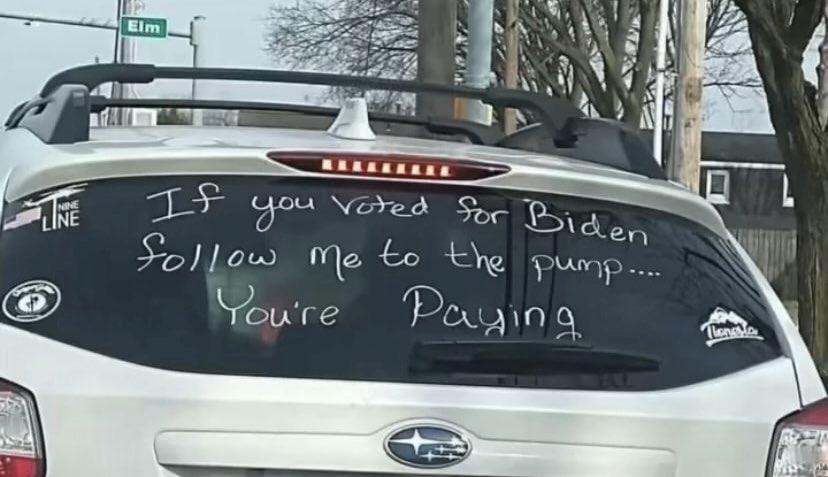 Elm
NINE
LINE
If you Voted for Biden
follow me to the pump....
You're Paying